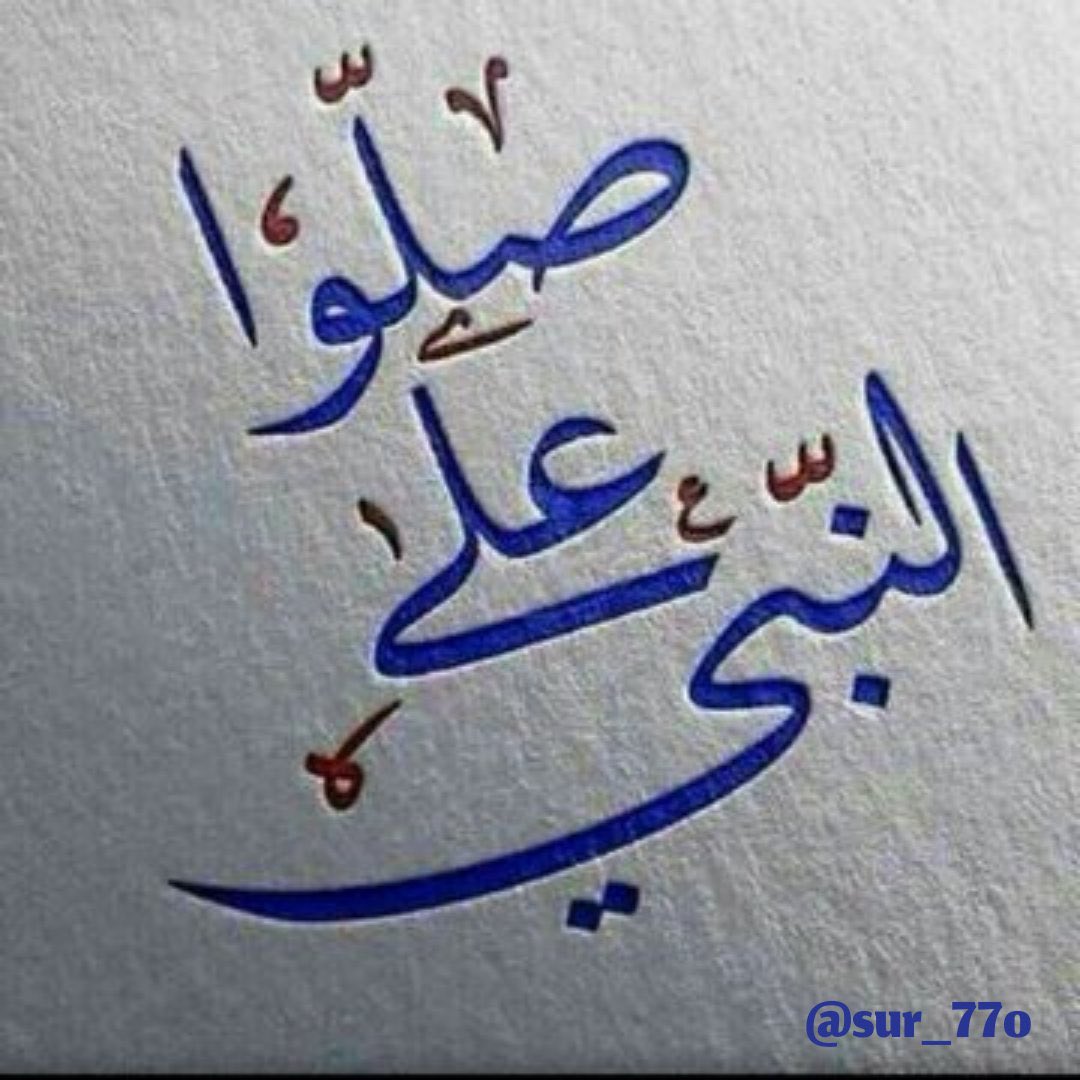 صلّوا
على
النّبي
@sur_77o